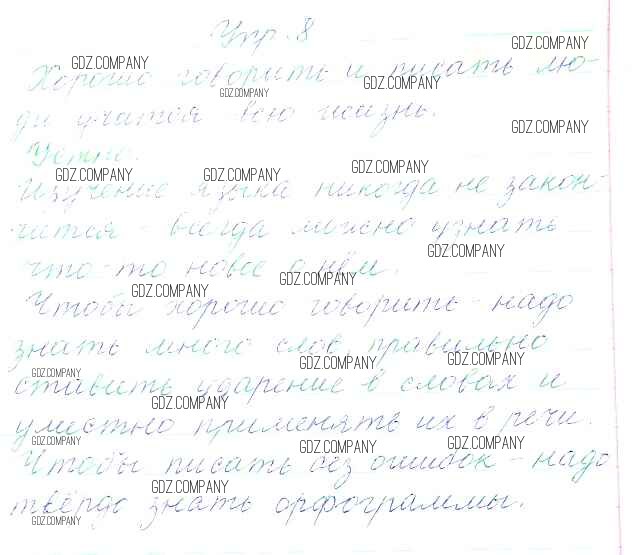 Упр. 8
GDZ.COMPANY
GDZ.COMPANY
Хорошо говорить и писать лю-
GDZ.COMPANY
GDZ.COMPANY
ди учатся всю жизнь.
GDZ.COMPANY
Устно.
GDZ.COMPANY
GDZ.COMPANY
GDZ.COMPANY
Изучение языка никогда не закон-
чится - всегда можно узнать
GDZ.COMPANY
что-то новое о нём.
GDZ.COMPANY
GDZ.COMPANY
Чтобы хорошо говорить - надо
знать много слов, правильно
GDZ.COMPANY
GDZ.COMPANY
GDZ.COMPANY
ставить ударение в словах и
GDZ.COMPANY
уместно применять их в речи.
GDZ.COMPANY
GDZ.COMPANY
GDZ.COMPANY
Чтобы писать без ошибок - надо
GDZ.COMPANY
твёрдо знать орфограммы.
GDZ.COMPANY